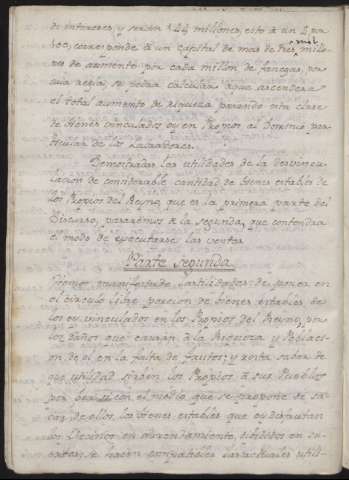 de intereses, y serian 144 millones, esto á un 4 p.r
100, corresponde á un capital de mas de tres mil millo-
nes de aumento por cada millon de fanegas, por
cuia regla, se podrá calcular á que ascenderá
el total aumento de riqueza pasando esta clase
de bienes vinculados oy en Propios al Dominio par-
ticular de los Labradores.
Demostradas las utilidades de la desvincu-
lacion de considerable cantidad de bienes estables de
los Propios del Reyno, que es la primera parte del
Discurso, pasaremos á la segunda, que contendrá
el modo de executarse las ventas
Parte Segunda
Hemos manifestado las utilidades de poner en
el circulo libre porcion de bienes estables de
los oy vinculados en los Propios del Reyno, por
los daños que causan á la Riqueza y Poblacio-
n de él en la falta de frutos; y resta saber de
que utilidad sirben los Propios á sus Pueblos
por ber si con el medio que se propone de sa-
car de ellos los bienes estables que oy disfrutan
los Vecinos en arrendamiento,
se hacen compatibles las actuales utili-